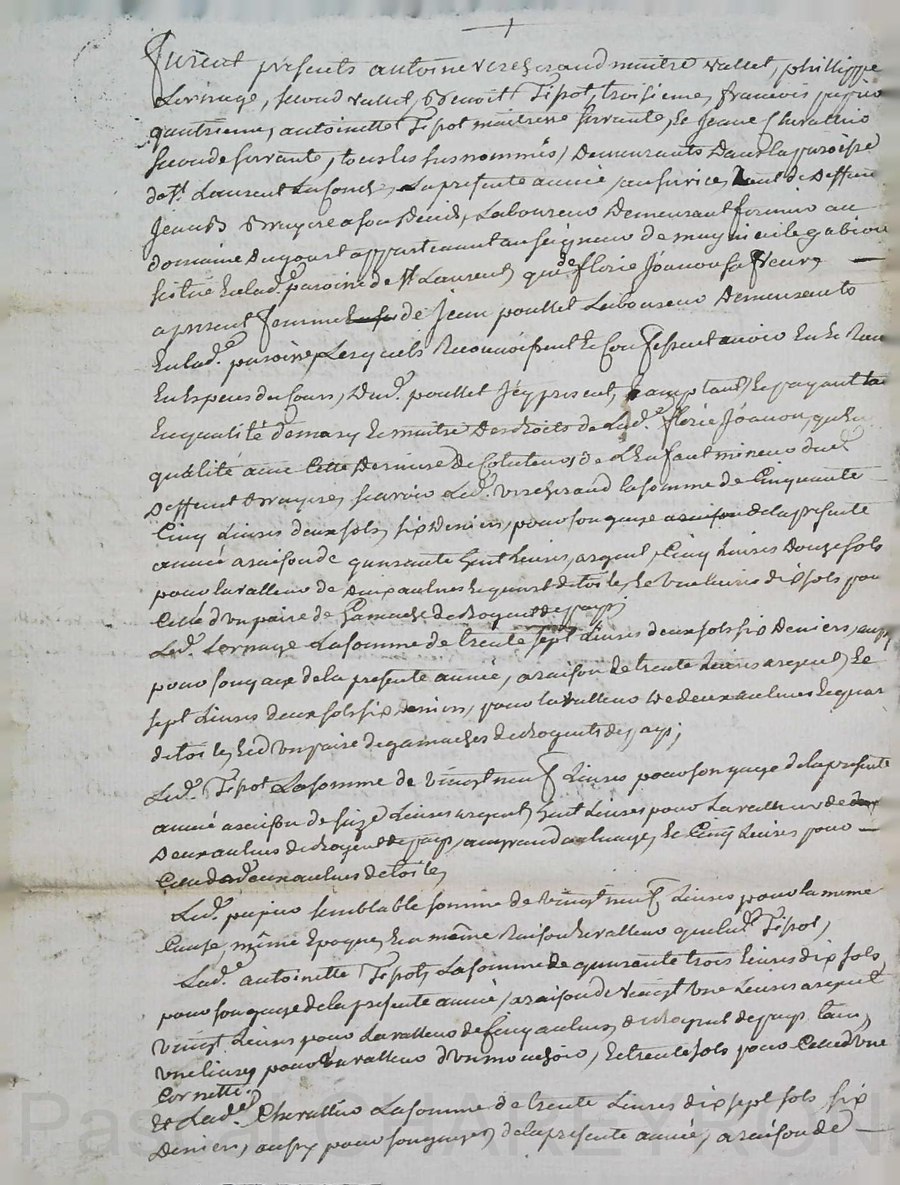 furent presents antoine verchevand maitre vallet, phillippe
Lernage, second vallet, & benoitt Tipot troisieme, francois pupier
quatrieme, antoinette Tipot maitresse servante, & Jeane Chevallier
seconde servante, tous les susnommés, Demeurants Dans la paroisse
de St Laurent La Conche, La presente année, au service, tant de deffunt
Jean Bruyere a son Deceds, Laboureur Demeurant fermier au
domaine appartenant au seigneur de magnieu le gabion
situé en lad.e paroisse de St Laurent, que de florie Joanon sa veuve
a present femme de Jean pouillet Laboureur Demeurants
en lad.e paroisse, Lesquels Reconnoissent & Confessent avoir eu & Receu
en especes du Cours, Dud.t pouillet icy present, & acceptant, & payant tant
en qualité de mary & maitre des droits de Lad.e florie Joanon, qu'en
qualité avec Cette Derniere de Cotuteur, de L'Enfant mineur dud.t
deffunt Bruyere, scavoir Led.t verchevand la somme de Cinquante
Cinq Livres deux sols, six Deniers, pour son gage de la presente
année a raison de quarante huit Livres, argent, Cinq Livres Douze sols
pour la valleur de Deux aulnes & quart de toile, & une livre dix sols pour
Celle d'un paire de gamache de droguet de pays
Led.t Lernage La somme de trente sept Livres deux sols six Deniers, aussy
pour son gage de la presente année, a raison de trente Livres argent, &
sept Livres deux sols six deniers, pour la valleur de Deux aulnes & quart
de toile, & d'un paire de gamaches de droguets de pays;
Led.t Tipot La somme de vingt neuf Livres pour son gage de la presente
année a raison de seize Livres argent, huit Livres pour La valleur de
Deux aulnes de droguet de pays, au grand aulnage, & Cinq Livres pour
Celle de deux aulnes de toile,
Led.t pupier semblable somme de vingt neuf Livres pour la meme
Cause, même Epoque, & a même Raison & valleur que led.t Tipot,
Lad.e antoinette Tipot, La somme de quarante trois Livres dix sols,
pour son gage de la presente année, a raison de vingt une Livres argent
vingt Livres pour La valleur de Cinq aulnes, droguet de pays,
une livre pour la valleur d'un mouchoir, & trente sols pour Celle d'une
Cornette.
& Lad.e Chevallier La somme de trente Livres dix sept sols six
Deniers, aussy pour son gage, de la presente année, a raison de